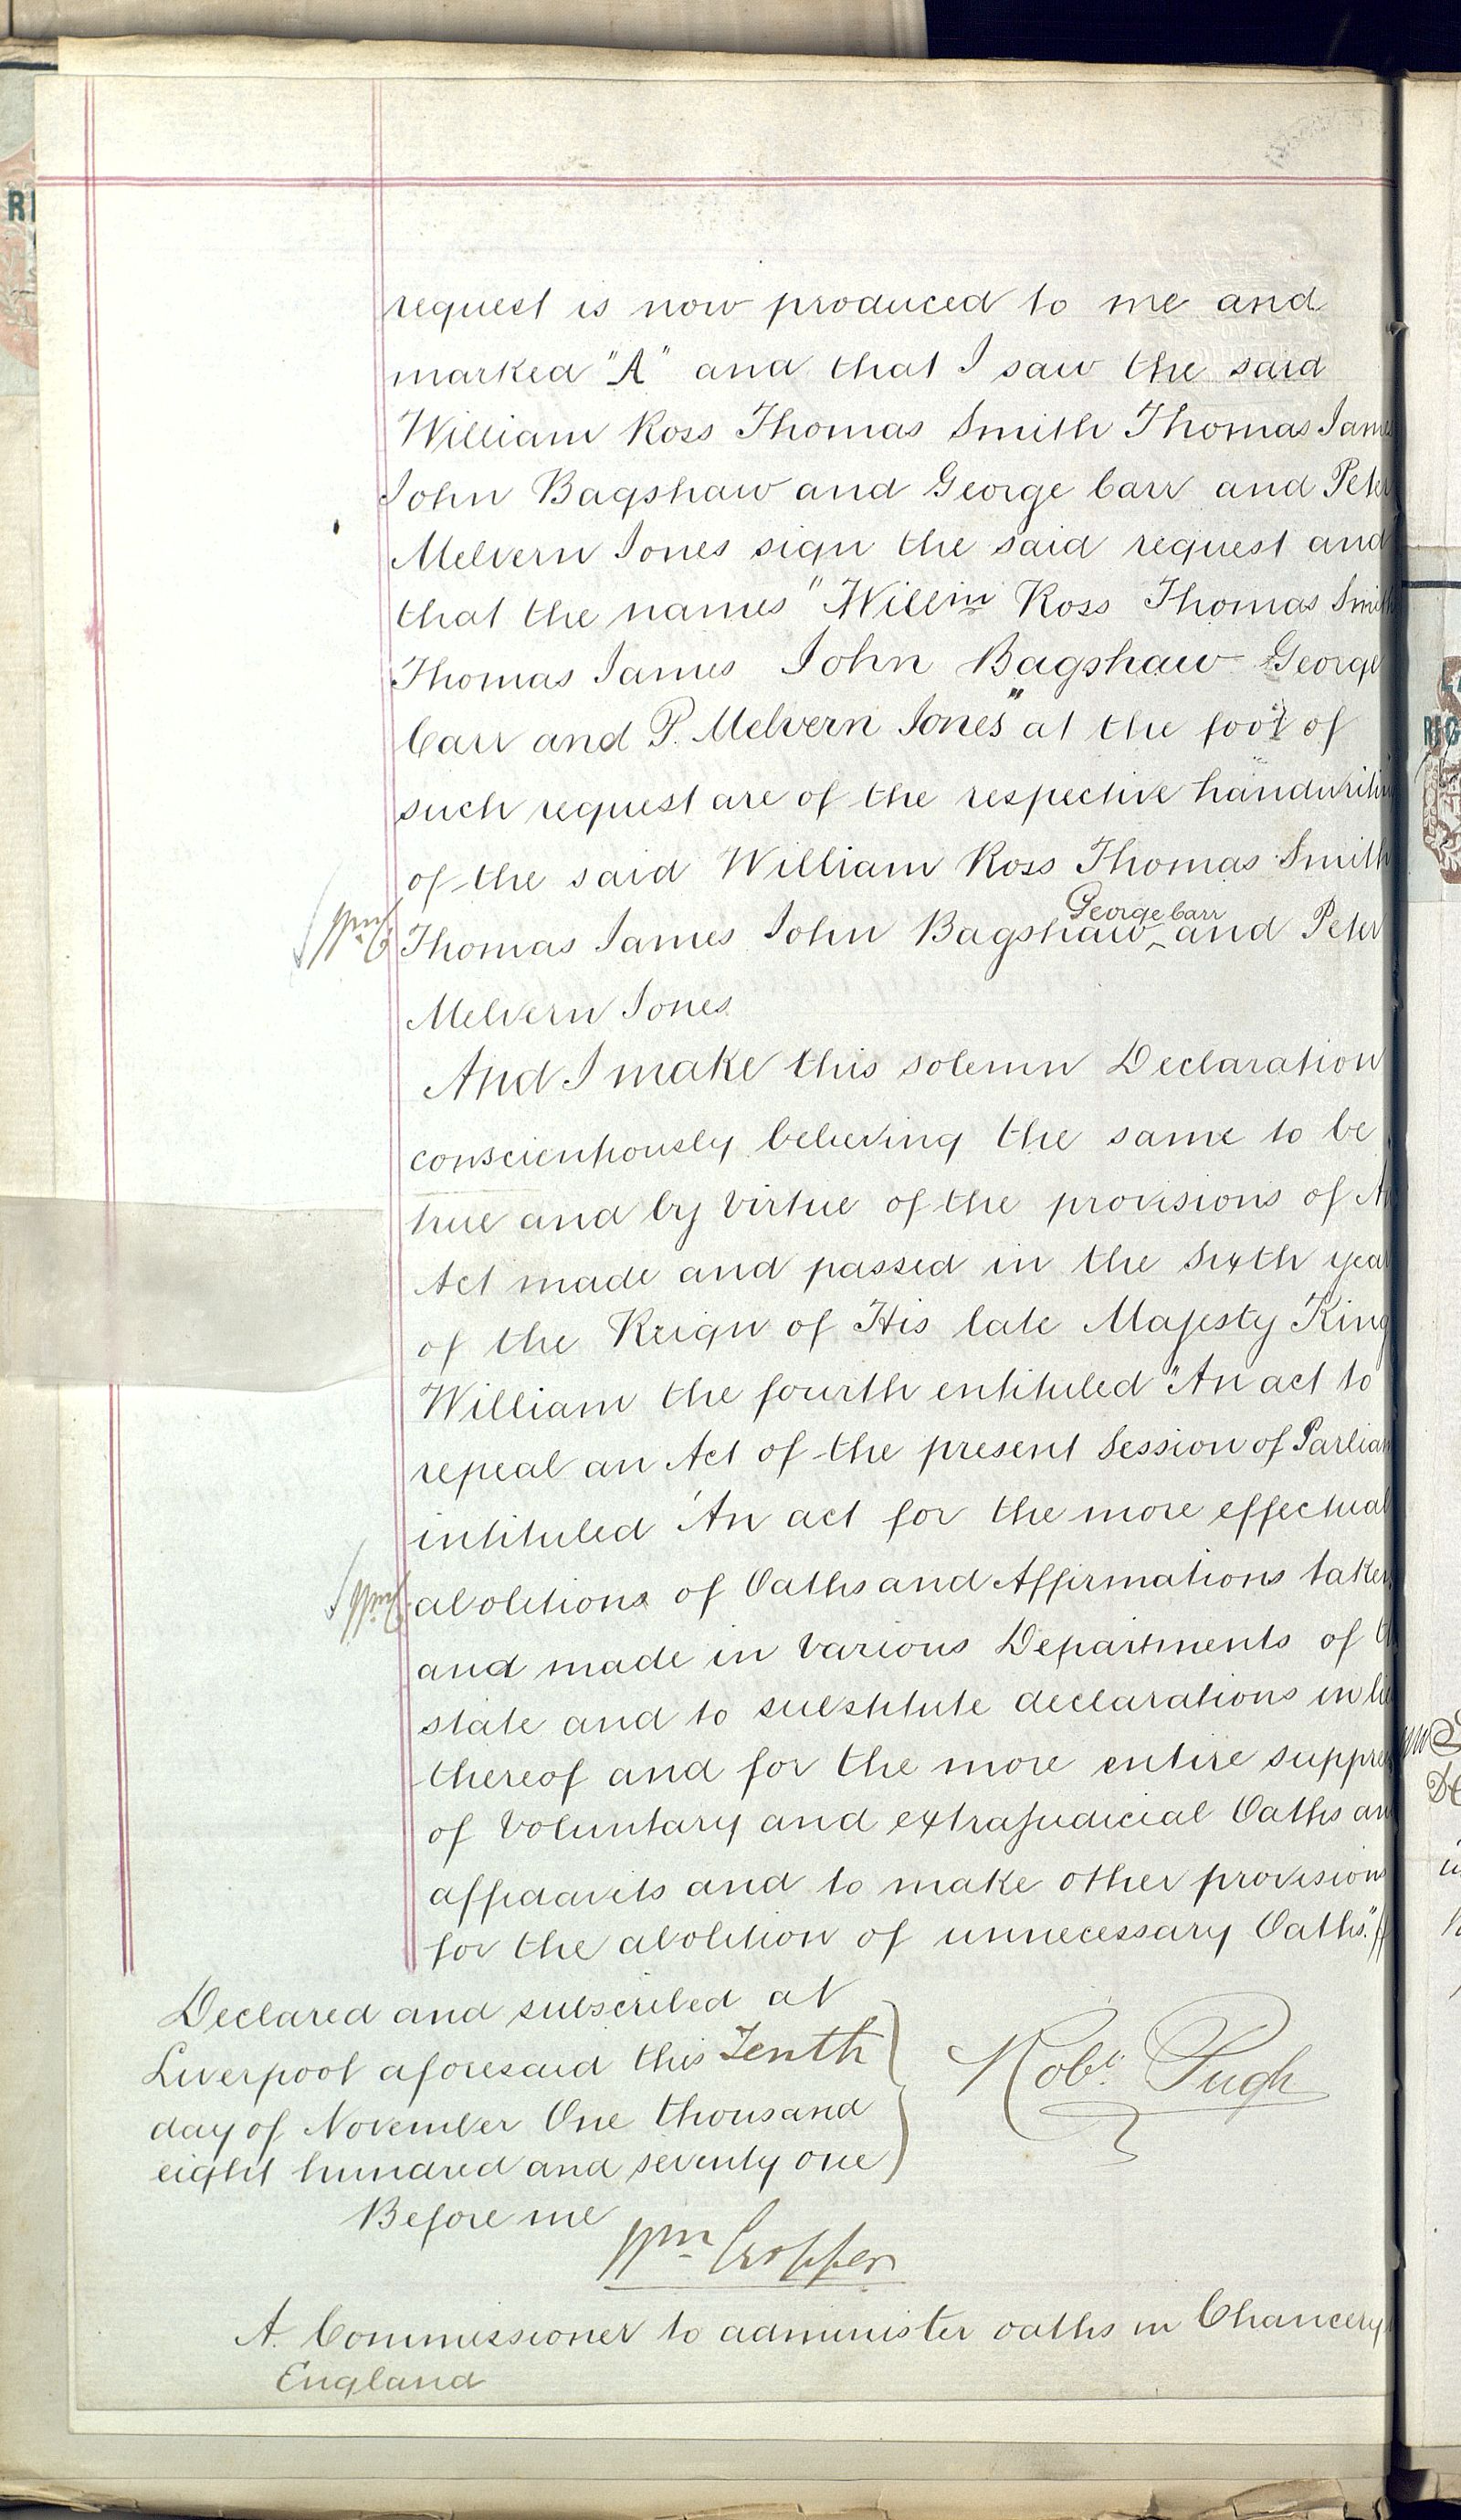 request is now produced to me and
marked "A" and that I saw the said
William Ross Thomas Smith Thomas James
John Bagshaw and George Carr and Peter
Melvern Jones sign the said request and
that the names "Willm Ross Thomas Smith
Thomas James John Bagshaw George
Carr and P. Melvern Jones" at the foot of
such request are of the respective handwriti
of the said William Ross Thomas Smith
George Carr
Wm C. Thomas James John Bagshaw ‸ and Peter
Melvern Jones.
And I make this solemn Declaration
conscientiously believing the same to be
true and by virtue of the provisions of An
Act made and passed in the Sixth year
of the Reign of His late Majesty King
William the fourth entituled "An act to
repeal an Act of the present Session of Parliam
intituled 'An act for the more effectual
Wm C. abolitions of Oaths and Affirmations taken
and made in various Departments of th
state and to substitute declarations in lie
thereof and for the more entire suppres
of voluntary and extrajudicial Oaths an
affidavits and to make other provisions
for the abolition of unnecessary Oaths."
Declared and subscribed at
Liverpool aforesaid this Tenth
day of November One thousand
eight hundred and seventy one
Robt. Pugh
Before me
Wm Cropper
A. Commissioner to administer oaths in Chancery
England